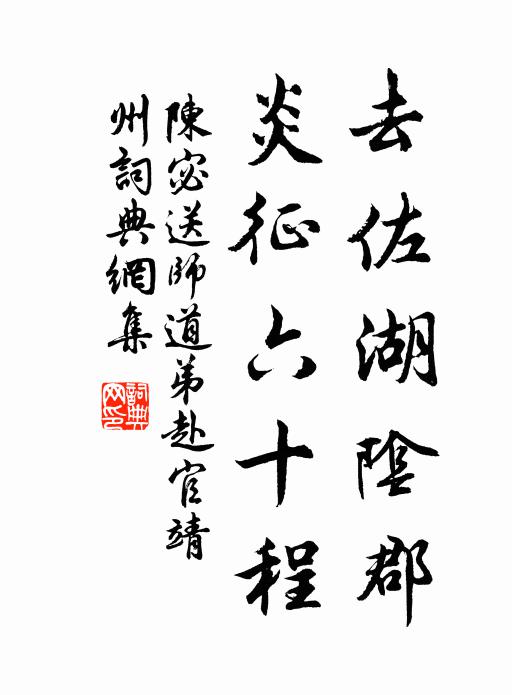 去佐湖陰郡
炎征六十程
陳宓送師道弟赴官靖
州詞典網集
詞典
网印